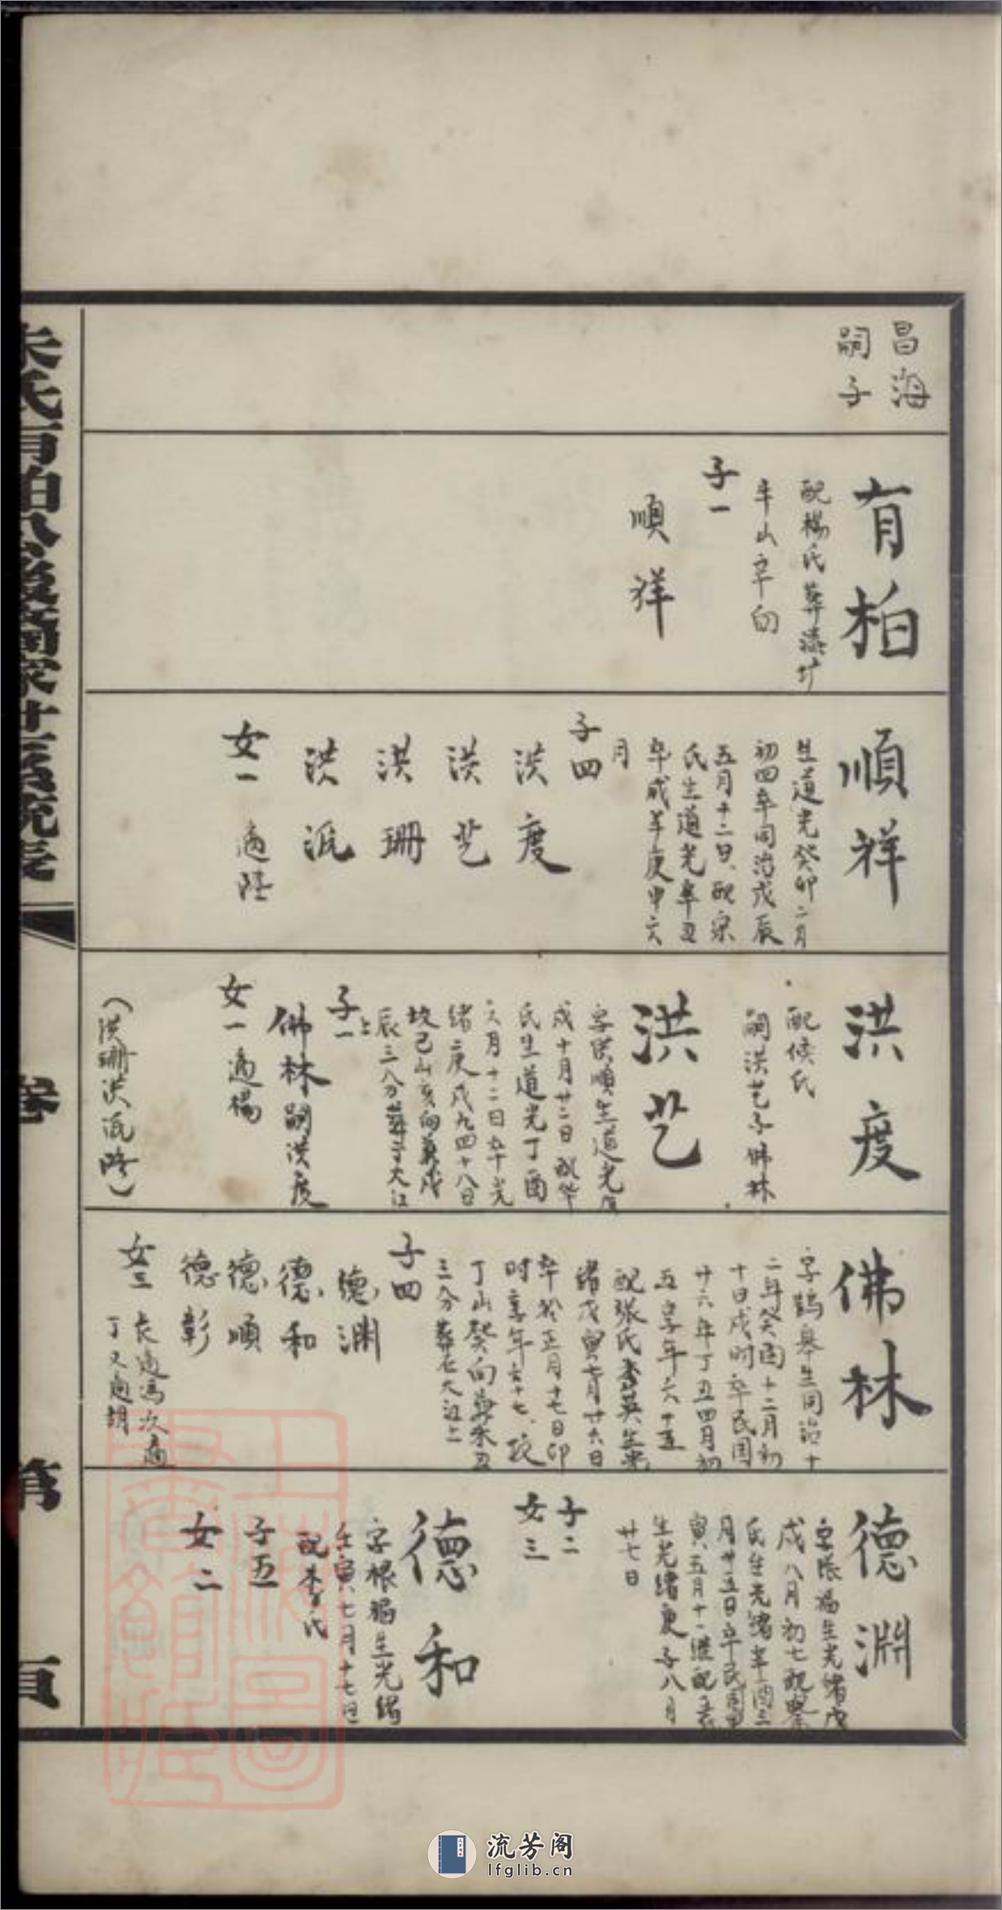 昌海
嗣子
有柏
配楊氏葬漆圩
牛山辛向
子一
順祥
順祥
生道光癸卯二月
初四卒同治戊辰
五月十二日配宗
氏生道光辛丑
卒咸丰庚申六
月
子四
洪度
洪艺
洪珊
洪派
女一 適陸
洪度
配候氏
嗣洪艺子佛林
洪艺
字洪順生道光
戌十月廿二日配華
氏生道光丁酉
六月十二日卒光
緒二庚戌九四十八日
坟己山亥向兼戌
辰三分葬于大江
上
子一
佛林嗣洪度
女一適楊
(洪珊洪派略)
佛林
字鶴皋生同治十
二年癸酉十二月初
十日戌时卒民国
廿六年丁丑四月初
五享年六十五
配張氏杏英生光
緒戊寅七月廿六日
卒於正月十七日卯
时享年六十七坟
丁山癸向兼未丑
三分葬在大江上
子四
德渊
德和
德順
德彰
女三 長適馮次適
丁又適胡
德淵
字張福生光緒戊
戌八月初七配
氏生光緒辛酉三
月廿五日卒民国
寅五月十一继配
生光緒庚子八月
廿七日
子二
女三
德和
字根福生光緒
壬寅七月十七日
配李氏
子五
女二
朱氏有柏公浚裔家世系統表
卷
第
頁
上海圖書館藏
流芳阁
lfglib.cn